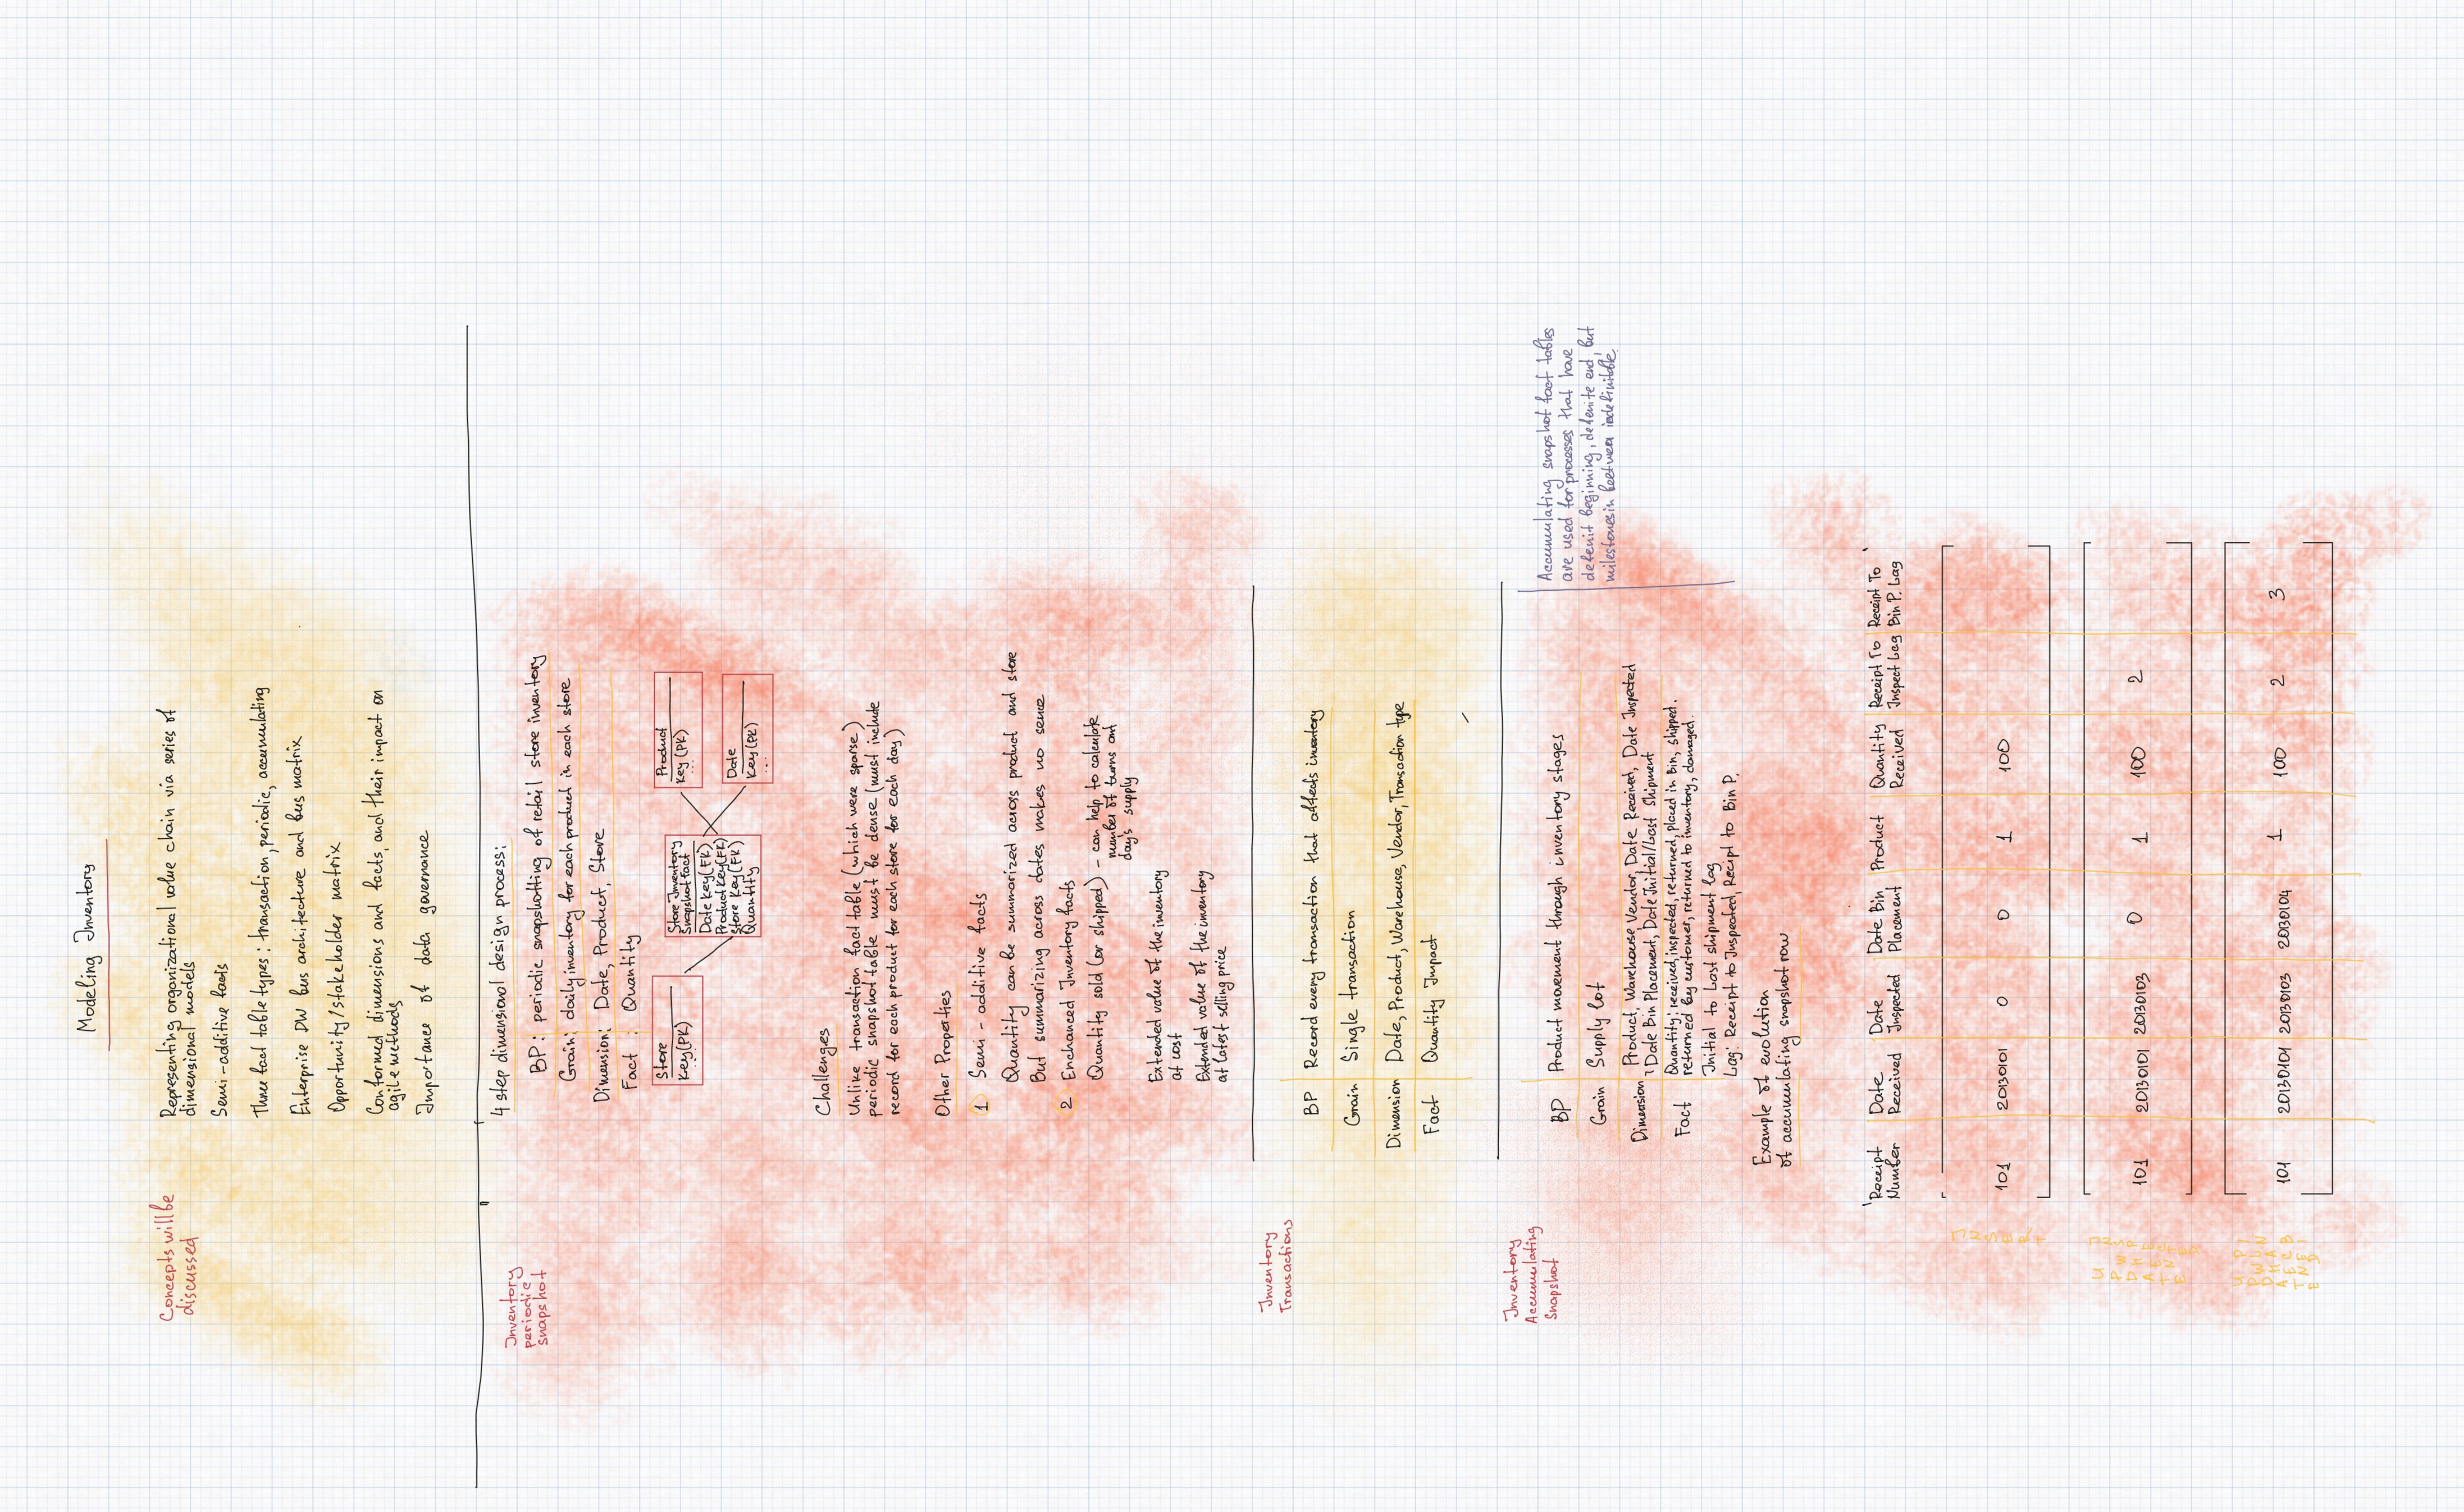 Modeling Inventory
Concepts will be
discussed
Representing organizational value chain via series of
dimensional models
Semi-additive facts
Three fact table types: transaction, periodic, accumulating
Enterprise DW bus architecture and bus matrix
Opportunity/stakeholder matrix
Conformed dimensions and facts, and their impact on
agile methods
Importance of data governance
Inventory
periodic
snapshot
4 step dimensional design process:
BP: periodic snapshotting of retail store inventory
Grain: daily inventory for each product in each store
Dimension: Date, Product, Store
Fact : Quantity
Store
Key(PK)
...
Store Inventory
Snapshot fact
Date key(FK)
Product Key(FK)
Store Key(FK)
Quantity
Product
Key (PK)
...
Date
Key(PK)
...
Challenges
Unlike transaction fact table (which were sparse)
periodic snapshot table must be dense (must include
record for each product for each store for each day)
Other Properties
1 Semi-additive facts
Quantity can be summarized across product and store
But summarizing across dates makes no sence
2 Enchanced Inventory facts
Quantity sold (or shipped) - can help to calculate
number of turns and
day's supply
Extended value of the inventory
at cost
Extended value of the inventory
at latest selling price
Inventory
Transactions
BP Record every transaction that affects inventory
Grain Single transaction
Dimension Date, Product, Warehouse, Vendor, Transaction type
Fact Quantity Impact
Inventory
Accumulating
Snapshot
BP Product movement through inventory stages
Grain Supply lot
Dimension Product, Warehouse, Vendor, Date Received, Date Inspected
, Date Bin Placement, Date Initial/Last Shipment
Fact Quantity: received, inspected, returned, placed in bin, shipped.
returned by customer, returned to inventory, damaged.
Initial to Last shipment lag
Lag: Receipt to Inspected, Recipt to Bin P.
Accumulating snapshot fact tables
are used for processes that have
defenit beginning, defenite end, but
milestones in between indefinitable.
Example of evolution
of accumulating snapshot row
Receipt Number Date Received Date Inspected Date Bin Placement Product Quantity Received Receipt To Inspect Lag Receipt To Bin P. Lag
INSERT
101 20130101 0 0 1 100
UPDATE WHEN INSPECTED
101 20130101 20130103 0 1 100 2
UPDATE WHEN PLACED IN BI
101 20130101 20130103 20130104 1 100 2 3